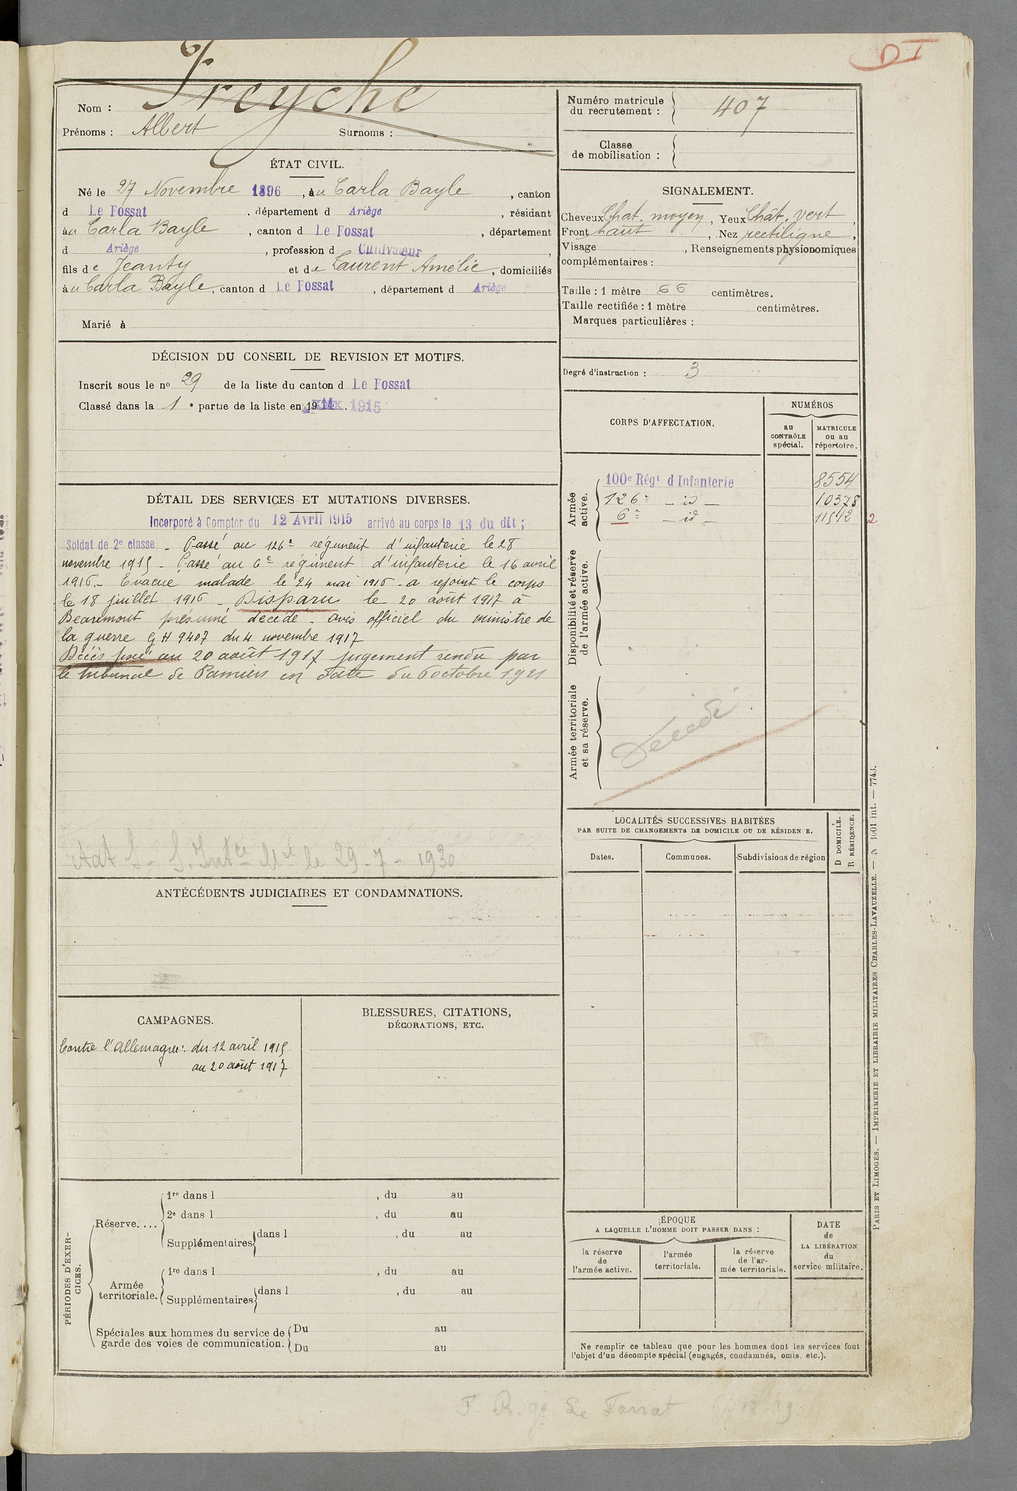 DI
Nom : Freyche
Prénoms : Albert Surnoms :
Numéro matricule du recrutement : 407
Classe de mobilisation :
ÉTAT CIVIL.
Né le 27 Novembre 1896, à u Carla Bayle, canton
d Le Fossat, département d Ariège, résidant
à u Carla Bayle, canton d Le Fossat, département
d Ariège, profession d Cultivateur
fils d e Jeanty et d e Laurent Amélie, domiciliés
à u Carla Bayle, canton d Le Fossat, département d Ariège
Marié à
SIGNALEMENT.
Cheveux Chat. moyen, Yeux Chât. vert
Front haut, Nez rectiligne,
Visage , Renseignements physionomiques
complémentaires :
Taille : 1 mètre 66 centimètres.
Taille rectifiée : 1 mètre centimètres.
Marques particulières :
Degré d'instruction : 3
DÉCISION DU CONSEIL DE REVISION ET MOTIFS.
Inscrit sous le nº 29 de la liste du canton d Le Fossat
Classé dans la 1 e partie de la liste en 1915
CORPS D'AFFECTATION.
NUMÉROS
au CONTRÔLE spécial.
MATRICULE ou au répertoire.
Armée active.
100e Régt d'Infanterie 8554
126e - id - 10378
6e - id - 11542
2
Disponibilité et réserve de l'armée active.
Armée territoriale et sa réserve.
Décédé
DÉTAIL DES SERVICES ET MUTATIONS DIVERSES.
Incorporé à Compter du 12 Avril 1915 arrivé au corps le 13 du dit ;
Soldat de 2e classe - Passé au 126e régiment d'infanterie le 28
novembre 1915 - Passé au 6e régiment d'infanterie le 16 avril
1916 - Évacué malade le 24 mai 1916 - a rejoint le corps
le 18 juillet 1916 - Disparu le 20 août 1917 à
Beaumont présumé décédé - avis officiel du ministre de
la guerre GH 9407 du 4 novembre 1917
Décès fixé au 20 août 1917 jugement rendu par
le tribunal de Pamiers en date du 6 octobre 1921
le 29-7-1930
ANTÉCÉDENTS JUDICIAIRES ET CONDAMNATIONS.
LOCALITÉS SUCCESSIVES HABITÉES
PAR SUITE DE CHANGEMENTS DE DOMICILE OU DE RÉSIDEN E.
Dates. Communes. Subdivisions de région
D DOMICILE.
R RÉSIDENCE.
CAMPAGNES.
Contre l'Allemagne : du 12 avril 1915
au 20 août 1917
BLESSURES, CITATIONS,
DÉCORATIONS, ETC.
PÉRIODES D'EXERCICES.
Réserve....
1re dans l , du au
2e dans l , du au
Supplémentaires dans l , du au
Armée territoriale.
1re dans l , du au
Supplémentaires dans l , du au
Spéciales aux hommes du service de garde des voies de communication.
Du au
Du au
ÉPOQUE
A LAQUELLE L'HOMME DOIT PASSER DANS :
la réserve de l'armée active.
l'armée territoriale.
la réserve de l'armée territoriale.
DATE de LA LIBÉRATION du service militaire.
Ne remplir ce tableau que pour les hommes dont les services font
l'objet d'un décompte spécial (engagés, condamnés, omis, etc.).
PARIS ET LIMOGES. — IMPRIMERIE ET LIBRAIRIE MILITAIRES CHARLES-LAVAUZELLE. — N 1601 int. — 7743.
Le Fossat